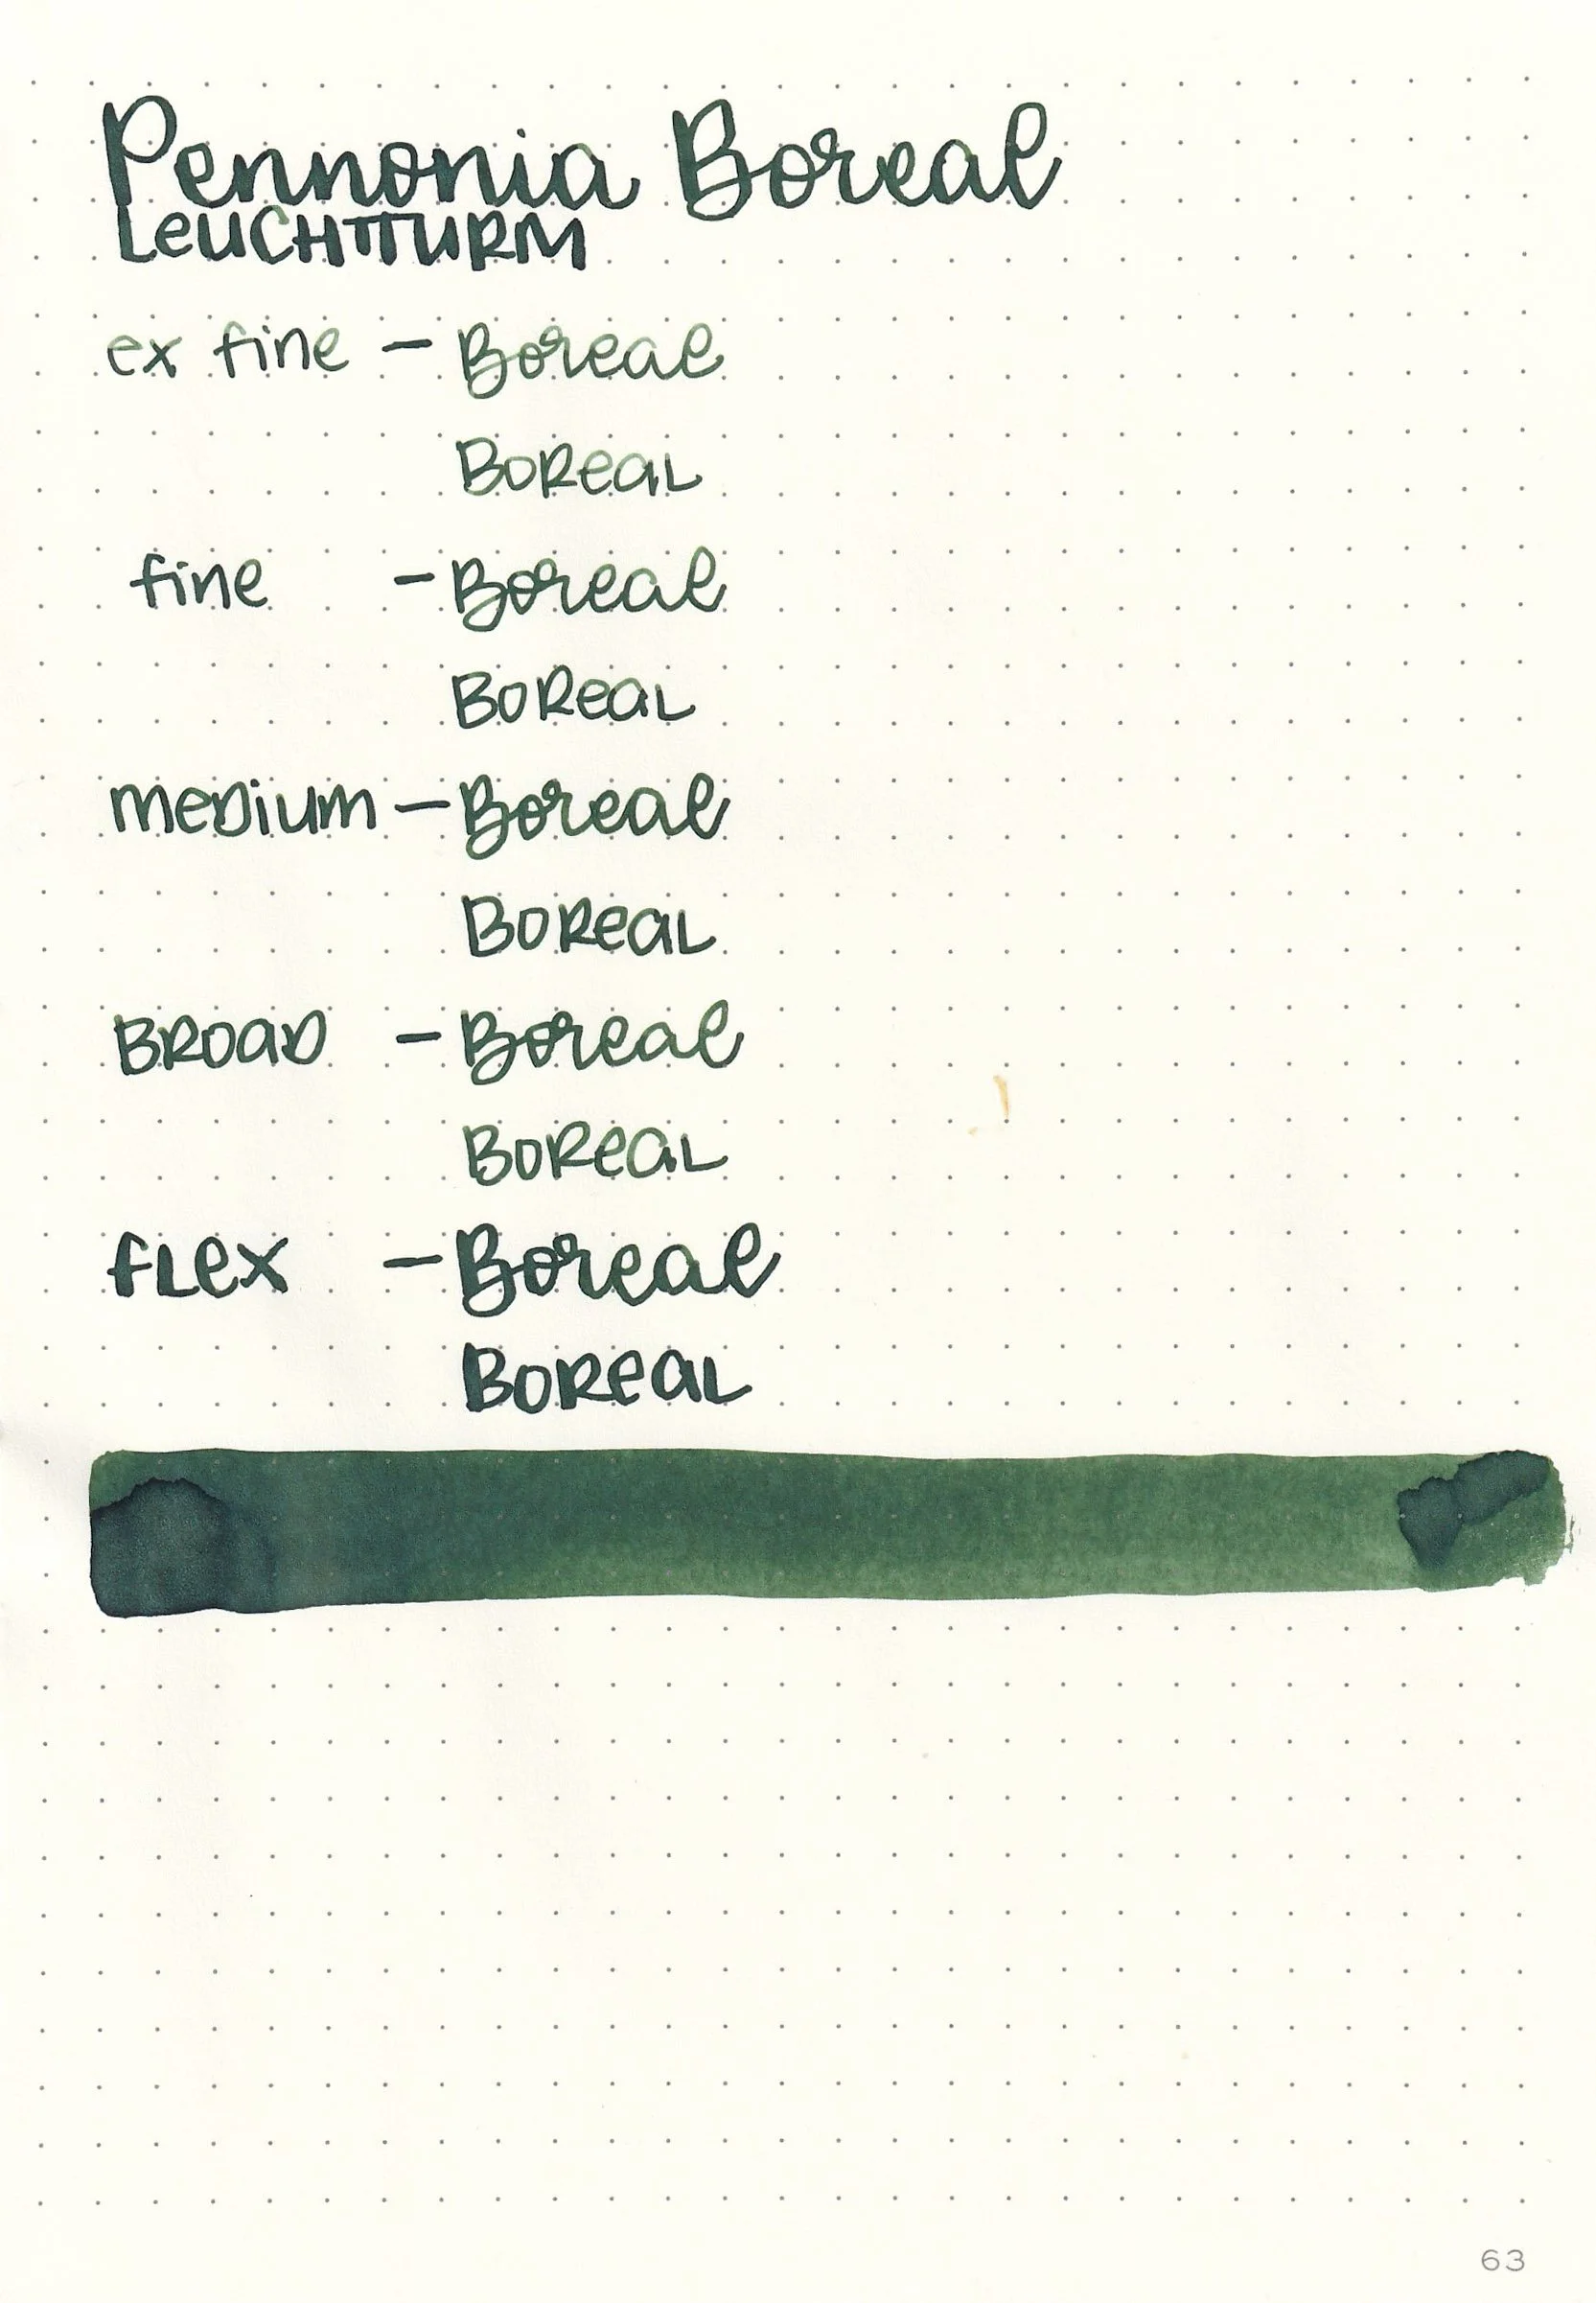 Pennonia Boreal
LeUCHTTURM
ex fine - Boreal
BOReaL
fine - Boreal
BOReaL
meDium - Boreal
BOReaL
BROaD - Boreal
BOReaL
fLex - Boreal
BOReaL
63